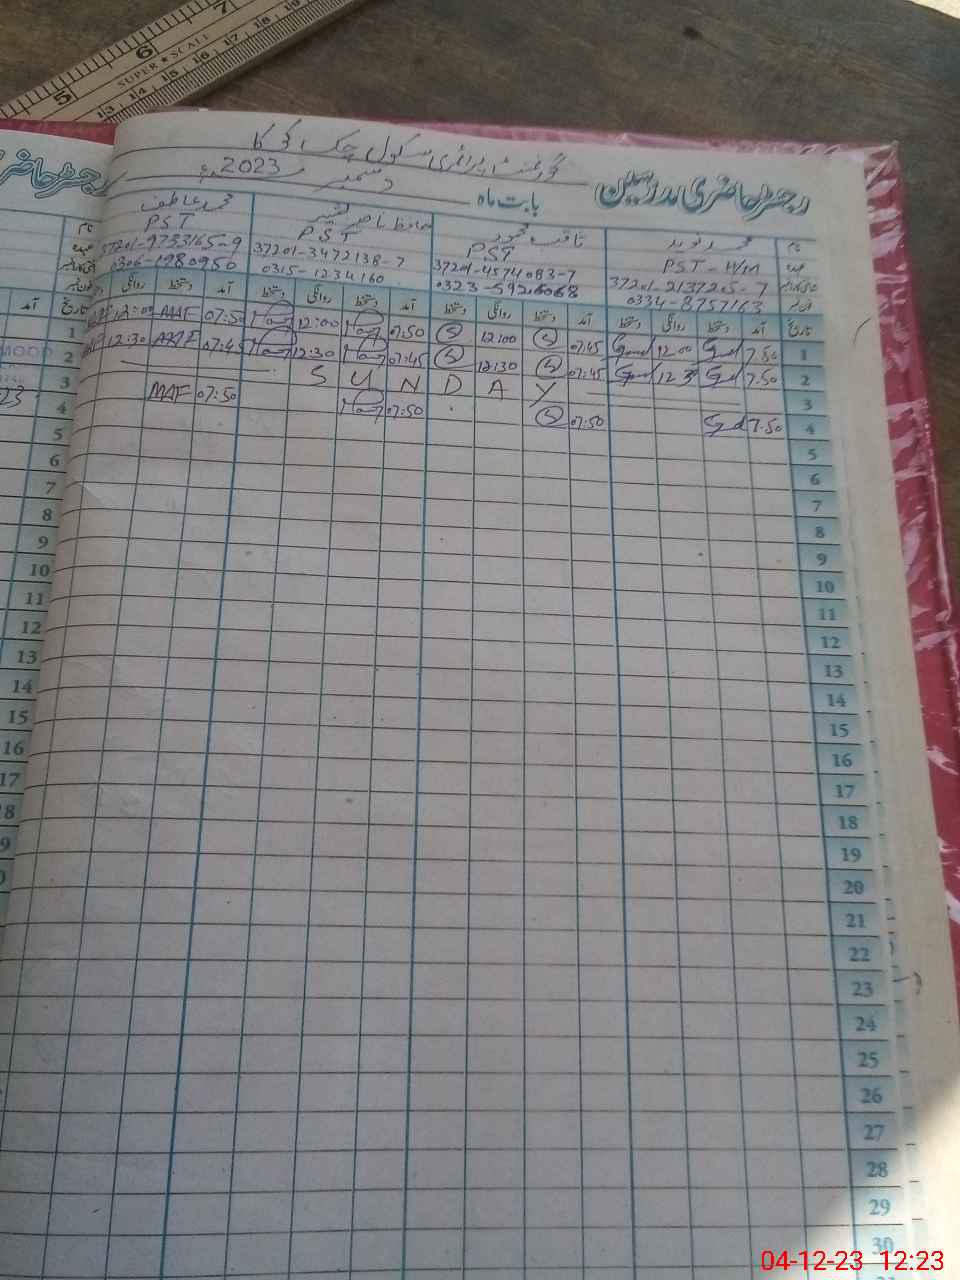 SUPER ★ SCALE
رجسٹر حاضری مدرسین
گورنمنٹ پرائمری سکول چک
بابت ماہ دسمبر 2023ء
نام محمد نوید ثاقب محمود حافظ ناصر محمد عاطف
عہدہ PST - H/M PST PST PST
37201-2137205-7 37201-4574083-7 37201-3472138-7 37201-9753165-9
فون نمبر 0334-8757163 0323-5926068 0315-1234160 0306-1980950
تاریخ آمد دستخط روانگی دستخط آمد دستخط روانگی دستخط آمد دستخط روانگی دستخط آمد دستخط روانگی
1 7.50 12:00 07:45 12:00 07:50 12:00 07:50 MAF 12:00
2 7.50 12:3 07:45 12:30 07:45 12:30 07:45 MAF 12:30
3 S U N D A Y
4 7.50 07:50 07:50 07:50 MAF
5
6
7
8
9
10
11
12
13
14
15
16
17
18
19
20
21
22
23
24
25
26
27
28
29
30
04-12-23 12:23